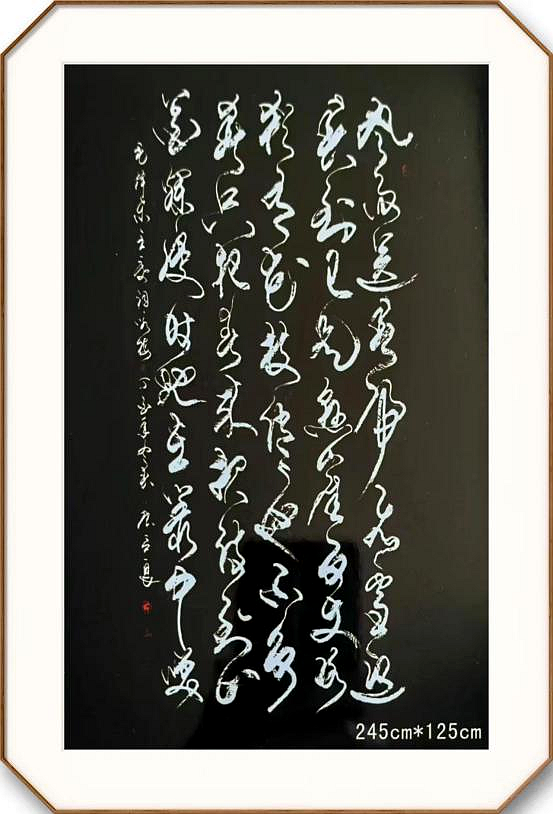 风雨送春归飞雪迎
春到已是悬崖百丈冰
犹有花枝俏俏也不争
春只把春来报待到山
花烂漫时她在丛中笑
毛泽东主席词咏梅 丁亥年
245cm*125cm